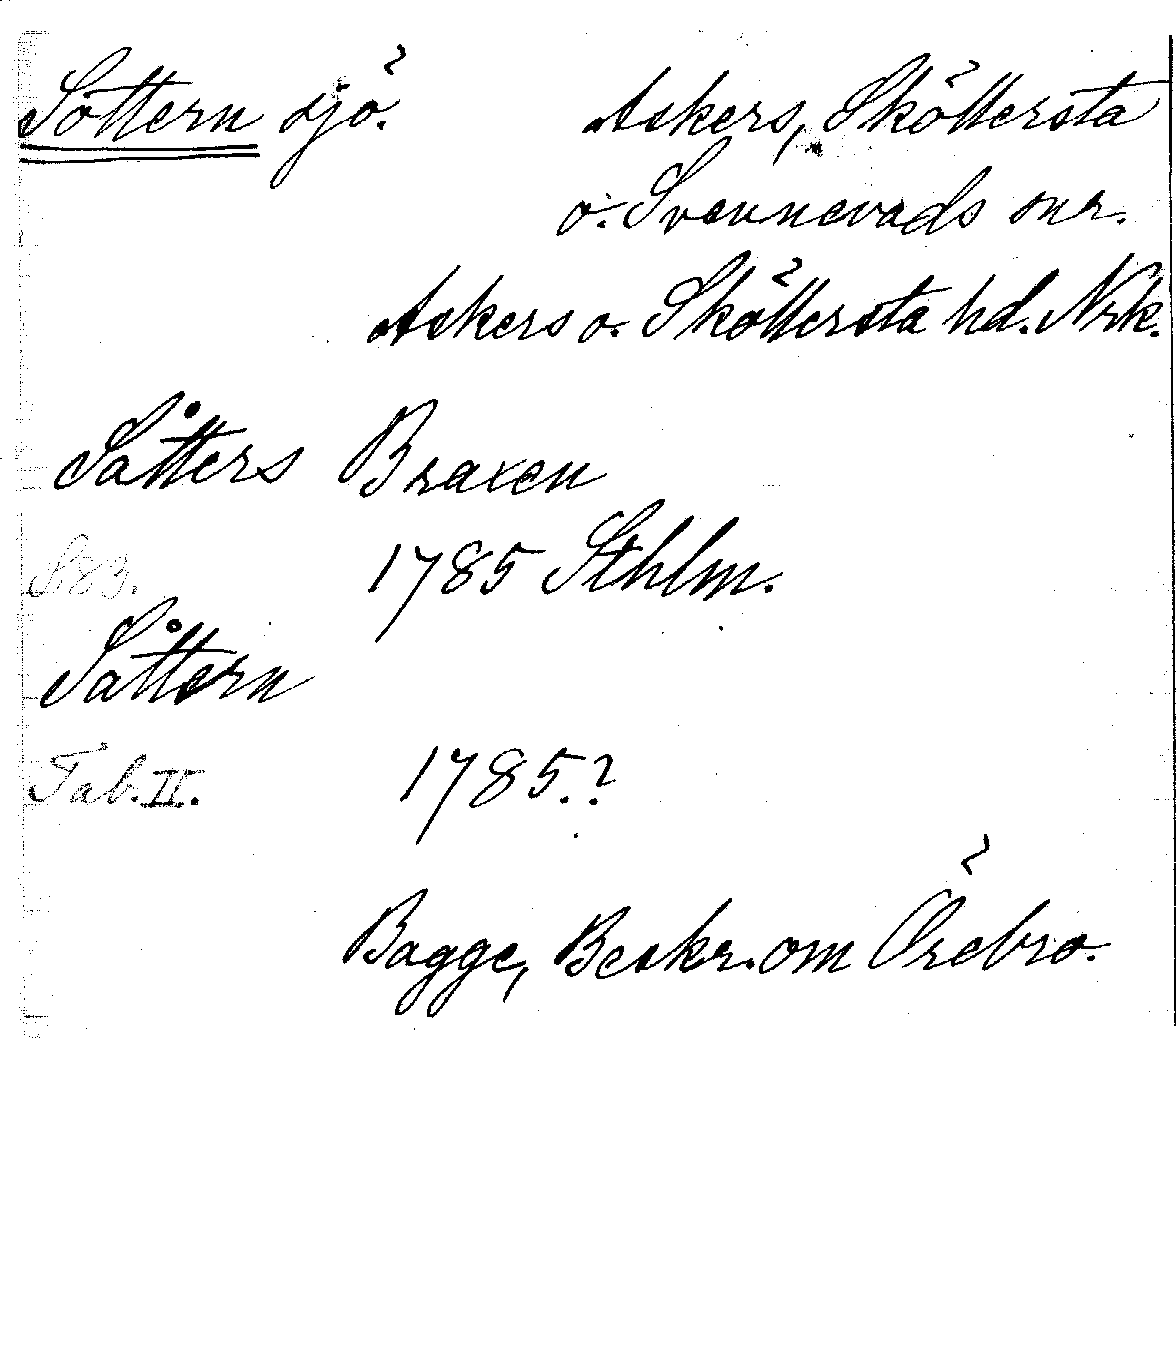 Sottern sjö. Askers, Sköllersta
o. Svennevads snr.
Askers o. Sköllersta hd. Nrk.
Såtters Braxen
S. 83. 1785 Sthlm.
Såttern
Tab. II. 1785.?
Bagge, Beskr. om Örebro.